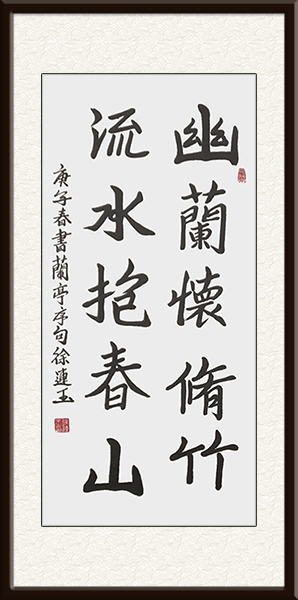 幽蘭懷脩竹
流水抱春山
庚子春書蘭亭序句徐蓮玉